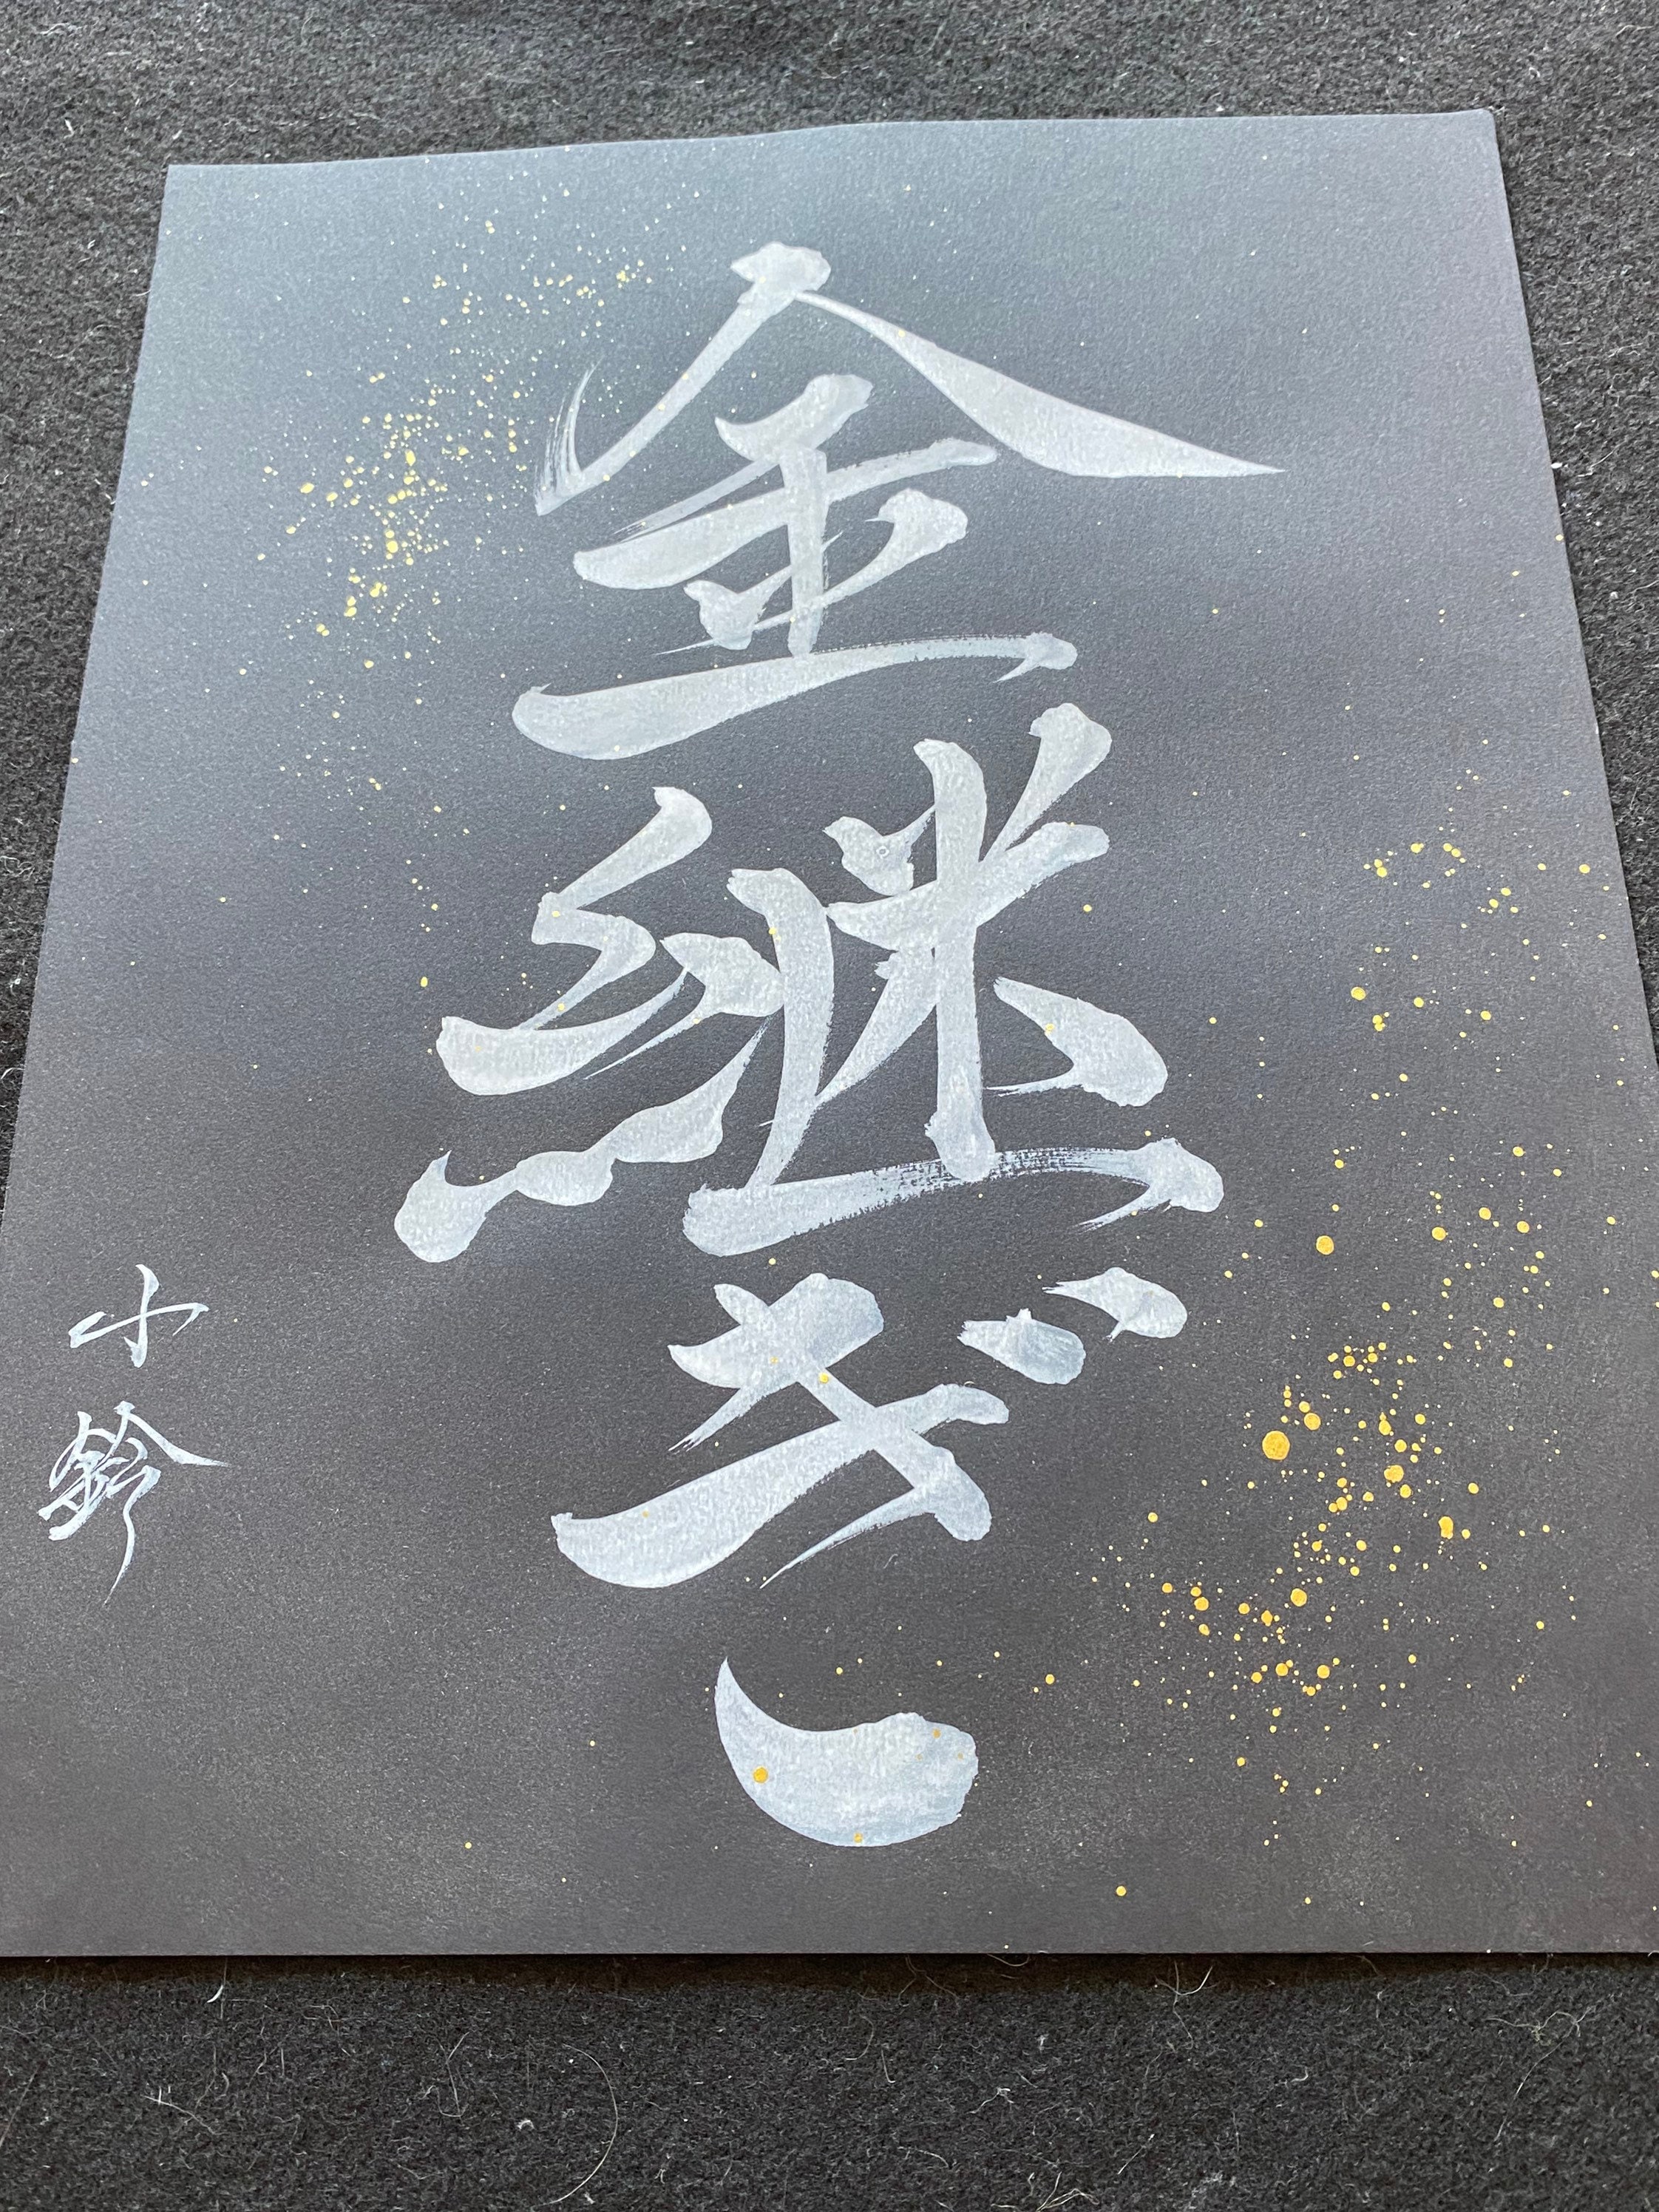 金継ぎ
小鈴